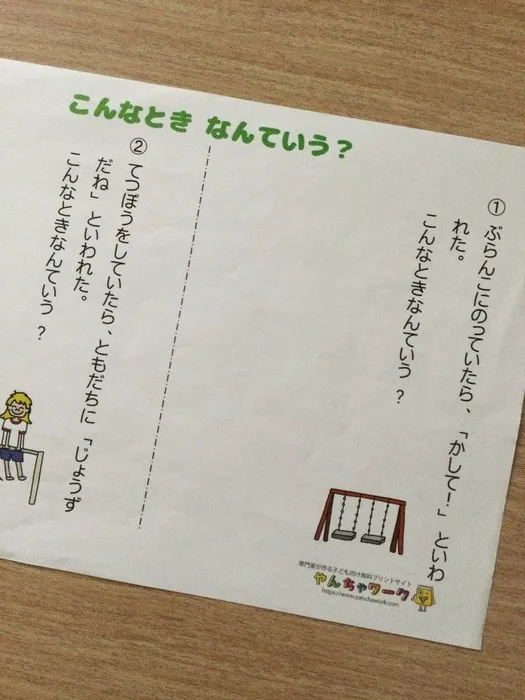 こんなとき なんていう？
① ぶらんこにのっていたら、「かして！」といわ
れた。
こんなときなんていう？
② てつぼうをしていたら、ともだちに「じょうず
だね」といわれた。
こんなときなんていう？
専門家が作る子ども向け無料プリントサイト
やんちゃワーク
https://www.yanchawork.com